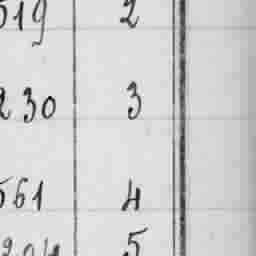 519 2
230 3
561 4
5